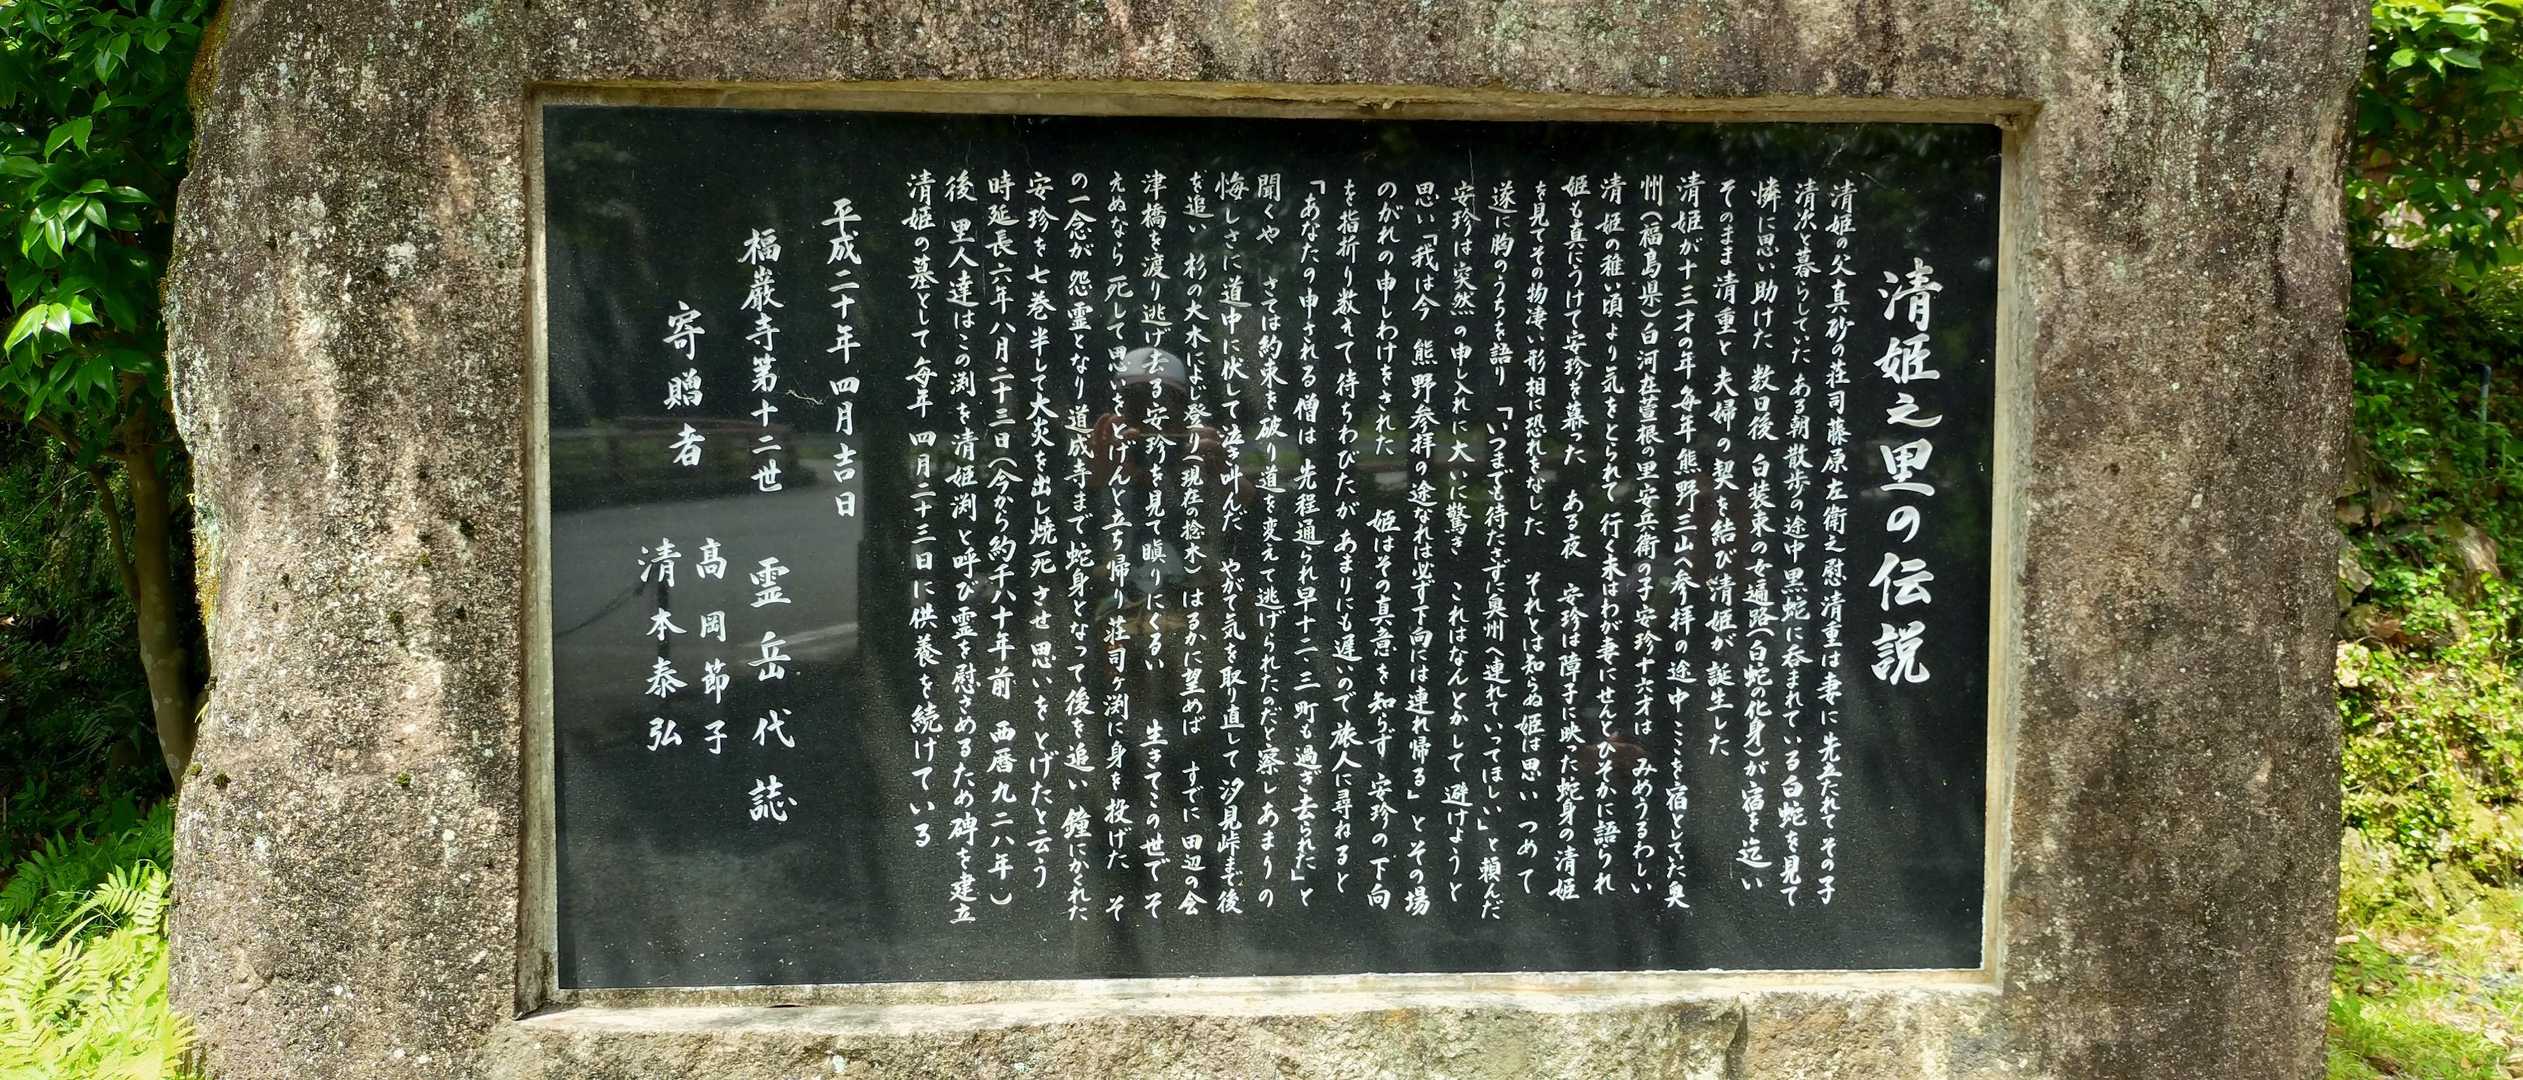 清姫之里の伝説
清姫の父真砂の荘司藤原左衛之慰清重は妻に先立たれてその子
清次と暮らしていた ある朝散歩の途中黒蛇に呑まれている白蛇を見て
憐に思い助けた 数日後 白装束の女遍路(白蛇の化身)が宿を迄い
そのまま清重と夫婦の契を結び清姫が誕生した
清姫が十三才の年毎年熊野三山へ参拝の途中ここを宿としていた奥
州(福島県)白河在萱根の里安兵衛の子安珍十六才は みめうるわしい
清姫の稚い頃より気をとられて 行く末はわが妻にせんとひそかに語られ
姫も真にうけて安珍を慕った ある夜 安珍は障子に映った蛇身の清姫
を見てその物凄い形相に恐れをなした それとは知らぬ姫は思い つめて
遂に胸のうちを語り 「いつまでも待たさずに奥州へ連れていってほしい」と頼んだ
安珍は突然の申し入れに大いに驚き これはなんとかして 避けようと
思い「我は今 熊野参拝の途なれば必ず下向には連れ帰る」とその場
のがれの申しわけをされた 姫はその真意を知らず 安珍の下向
を指折り数えて待ちわびたが あまりにも遅いので旅人に尋ねると
「あなたの申される僧は 先程通られ早十二、三町も過ぎ去られた」と
聞くや さては約束を破り道を変えて逃げられたのだと察しあまりの
悔しさに道中に伏して泣き叫んだ やがて気を取り直して 汐見峠まで後
を追い 杉の大木によじ登り(現在の捻木)はるかに望めば すでに田辺の会
津橋を渡り逃げ去る安珍を見て瞋りにくるい 生きてこの世で そ
えぬなら 死して思いをとげんと立ち帰り荘司ヶ渕に身を投げた そ
の一念が 怨霊となり道成寺まで蛇身となって後を追い 鐘にかくれた
安珍を七巻半して大炎を出し焼死させ思いをとげたと云う
時延長六年八月二十三日(今から約千八十年前 西暦九二八年)
後 里人達はこの渕を清姫渕と呼び霊を慰さめるため碑を建立
清姫の墓として毎年四月二十三日に供養を続けている
平成二十年四月吉日
福巌寺第十二世 霊岳代誌
寄贈者 高岡節子
清本泰弘